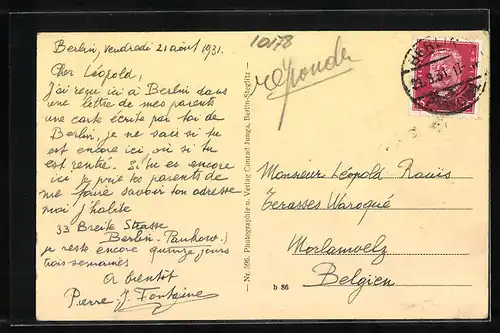 Berlin, vendredi 21 août 1931.
Cher Léopold,
J'ai reçu ici à Berlin dans
une lettre de mes parents
une carte écrite par toi de
Berlin, je ne sais si tu
est encore ici, où si tu
est rentré. Si tu es encore
ici je prie tes parents de
me faire savoir ton adresse
moi j'habite
33 Breite Strasse
Berlin-Pankow.)
je reste encore quinze jours
trois semaines
A bientôt
Pierre J. Fontaine
10178
répondu
— Nr. 596. Photographie u. Verlag Conrad Junga, Berlin-Steglitz —
b 86
BERLIN
Monsieur Léopold Rauis
Terasses Waroqué
Morlamwelz
Belgien